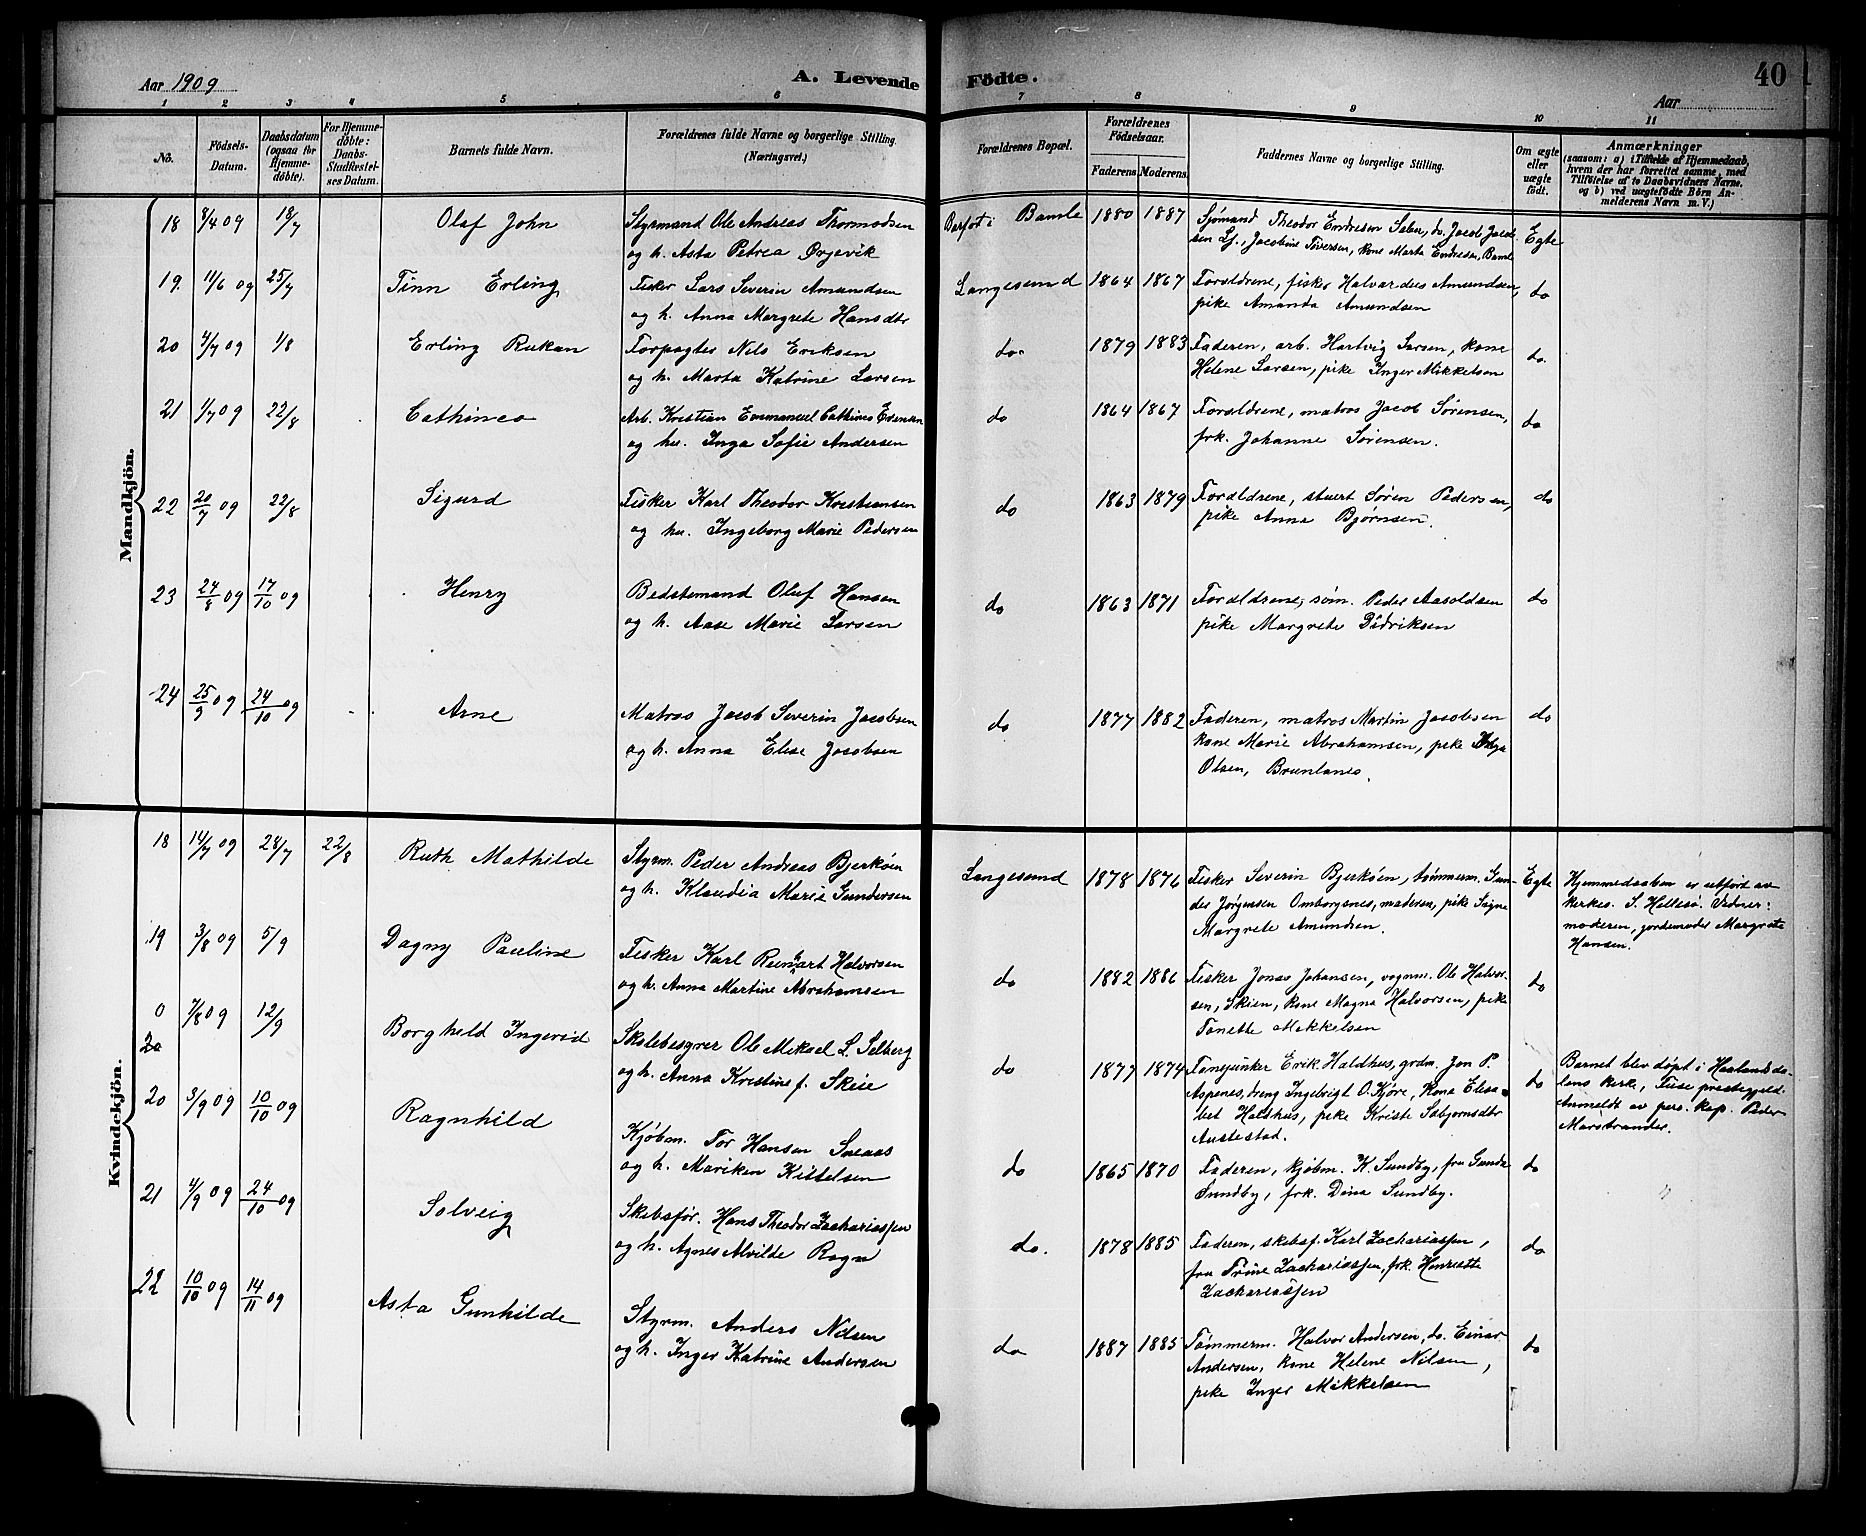 Aar 1909
A. Levende Födte.
40
Aar
1 2 3 4 5 6 7 8 9 10 11
No.
Födsels-
Datum.
Daabsdatum
(ogsaa for
Hjemme-
döbte).
For Hjemme-
döbte:
Daabs-
Stadfæstel-
ses Datum.
Barnets fulde Navn.
Forældrenes fulde Navne og borgerlige Stilling
(Næringsvei.)
Forældrenes Bopæl.
Forældrenes
Födselsaar.
Faderens Moderens.
Faddernes Navne og borgerlige Stilling.
Om ægte
eller
uægte
födt.
Anmærkninger
(saasom: a) i Tilfælde af Hjemmedaab,
hvem der har forrettet samme, med
Tilföielse af to Daabsvidners Navne.
og b) ved uægtefödte Börn An-
melderens Navn m. V.)
Mandkjön.
18 8/4 09 18/7 Olaf John
Styrmand Ole Andreas Thormodsen
og h. Asta Petrea Ørjevik
Bamle 1880 1887
Sjømand Theodor Endresen Salen, do. Jacob Jacob-
sen Lj., Jacobine Iversen, kone Marta Endresen, Bamle
Egte
19. 11/6 09 25/7 Finn Erling
Fisker Lars Severin Amundsen
og h. Anna Margrete Hansdtr
Langesund 1864 1867
Forældrene, fisker Halvar dees Amundsen,
pike Amanda Amundsen
do
20 4/7 09 1/8 Erling Rukan
Forpagter Nils Eriksen
og h. Marta Katrine Larsen
do. 1879 1883
Faderen, arb. Hartvig Larsen, kone
Helene Larsen, pike Inger Mikkelsen
do.
21 1/7 09 22/8 Cathinco
Arb. Kristian Emmanuel Cathinco Evensen
og hu. Inga Sofie Andersen
do 1864 1867
Forældrene, matros Jacob Sørensen,
frk. Johanne Sørensen.
do
22 20/7 09 22/8 Sigurd
Fisker Karl Theodor Kristiansen
og hu. Ingeborg Marie Pedersen
do 1863 1879
Forældrene, stuert Søren Pedersen,
pike Anna Bjørnsen.
do
23 24/8 09 17/10 09 Henry
Bedstemand Oluf Hansen
og h. Aase Marie Larsen
do 1863 1871
Forældrene, søm. Peder Aasoldsen
pike Margrete Didriksen
do
24 25/9 09 24/10 09 Arne
Matros Jacob Severin Jacobsen
og h. Anna Elise Jacobsen
do 1877 1882
Faderen, matros Martin Jacobsen
kone Marie Abrahamsen, pike Helga
Olsen, Brunlanes.
do
Kvindekjön.
18 14/7 09 28/7 22/8 Ruth Mathilde
Styrm. Peder Andreas Bjerkøen
og h. Klaudia Marie Gundersen
Langesund 1878 1876
Fisker Severin Bjerkøen, tømmerm. Gun-
der Jørgensen Omborgsnes, moderen, pike Signe
Margrete Amundsen.
Egte
Hjemmedaaben er utført av
kirkes. S. Hellesø. Vidner:
moderen, jordemoder Margrete
Hansen.
19 3/8 09 5/9 Dagny Pauline
Fisker Karl Reinhart Halvorsen
og h. Anna Martine Abrahamsen
do 1882 1886
Fisker Jonas Johansen, vognm. Ole Halvor-
sen, Skien, kone Magna Halvorsen, pike
Tonette Mikkelsen
do
0
20 7/8 09 12/9 Borghild Ingerid
Skolebesyrer Ole Mikael L. Selberg
og h. Anna Kristine f. Skeie
do 1877 1874
Fanejunker Erik Haldhus, grdm. Jon P.
Aspenes, dreng Ingebrigt O. Kjøre, Kona Elisa-
bet Haldhus, pike Kriste Sæbjørnsdtr
Austestad.
do
Barnet blev døpt i Haalandsda-
lens kirke, Fuse prestegjeld.
Anmeldt av pers. kap. Peder
Marstrander.
20 3/9 09 10/10 09 Ragnhild
Kjøbm. Tor Hansen Sneaas
og h. Mariken Kittelsen
do 1865 1870
Faderen, kjøbm. K. Sundby, fru Gunda
Sundby, frk. Dina Sundby.
do
21 4/9 09 24/10 09 Solveig
Skibsfør. Hans Theodor Zachariassen
og h. Agnes Alvilde Rogn
do. 1878 1885
Faderen, skibsf. Karl Zachariassen,
fru Trine Zachariassen, frk. Henriette
Zachariassen
do
22 10/10 09 14/11 09 Asta Gunhilde
Styrm. Anders Nilsen
og h. Inger Katrine Andersen
do 1887 1885
Tømmerm. Halvor Andersen, do. Einar
Andersen, kone Helene Nilsen,
pike Inger Mikkelsen
do